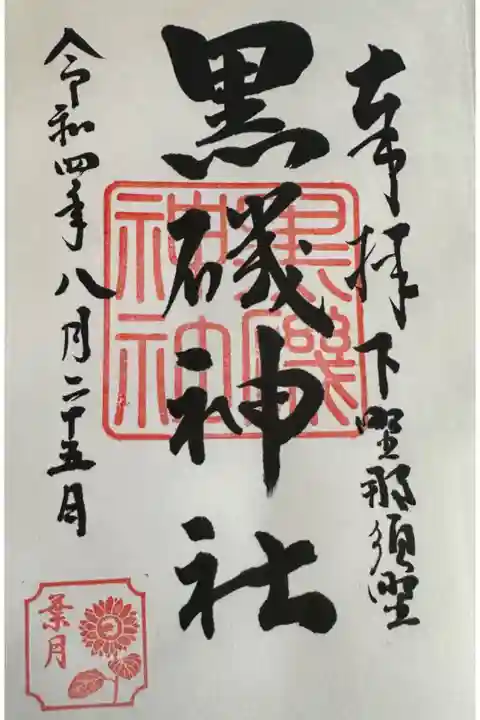 奉拝 下野那須野
黒磯神社
黒磯
神社
令和四年八月二十五日
葉月